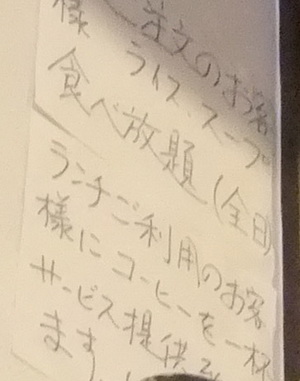 注文のお客
様 ライス、スープ
食べ放題(全日)
ランチご利用のお客
様にコーヒーを一杯
サービス提供
ます